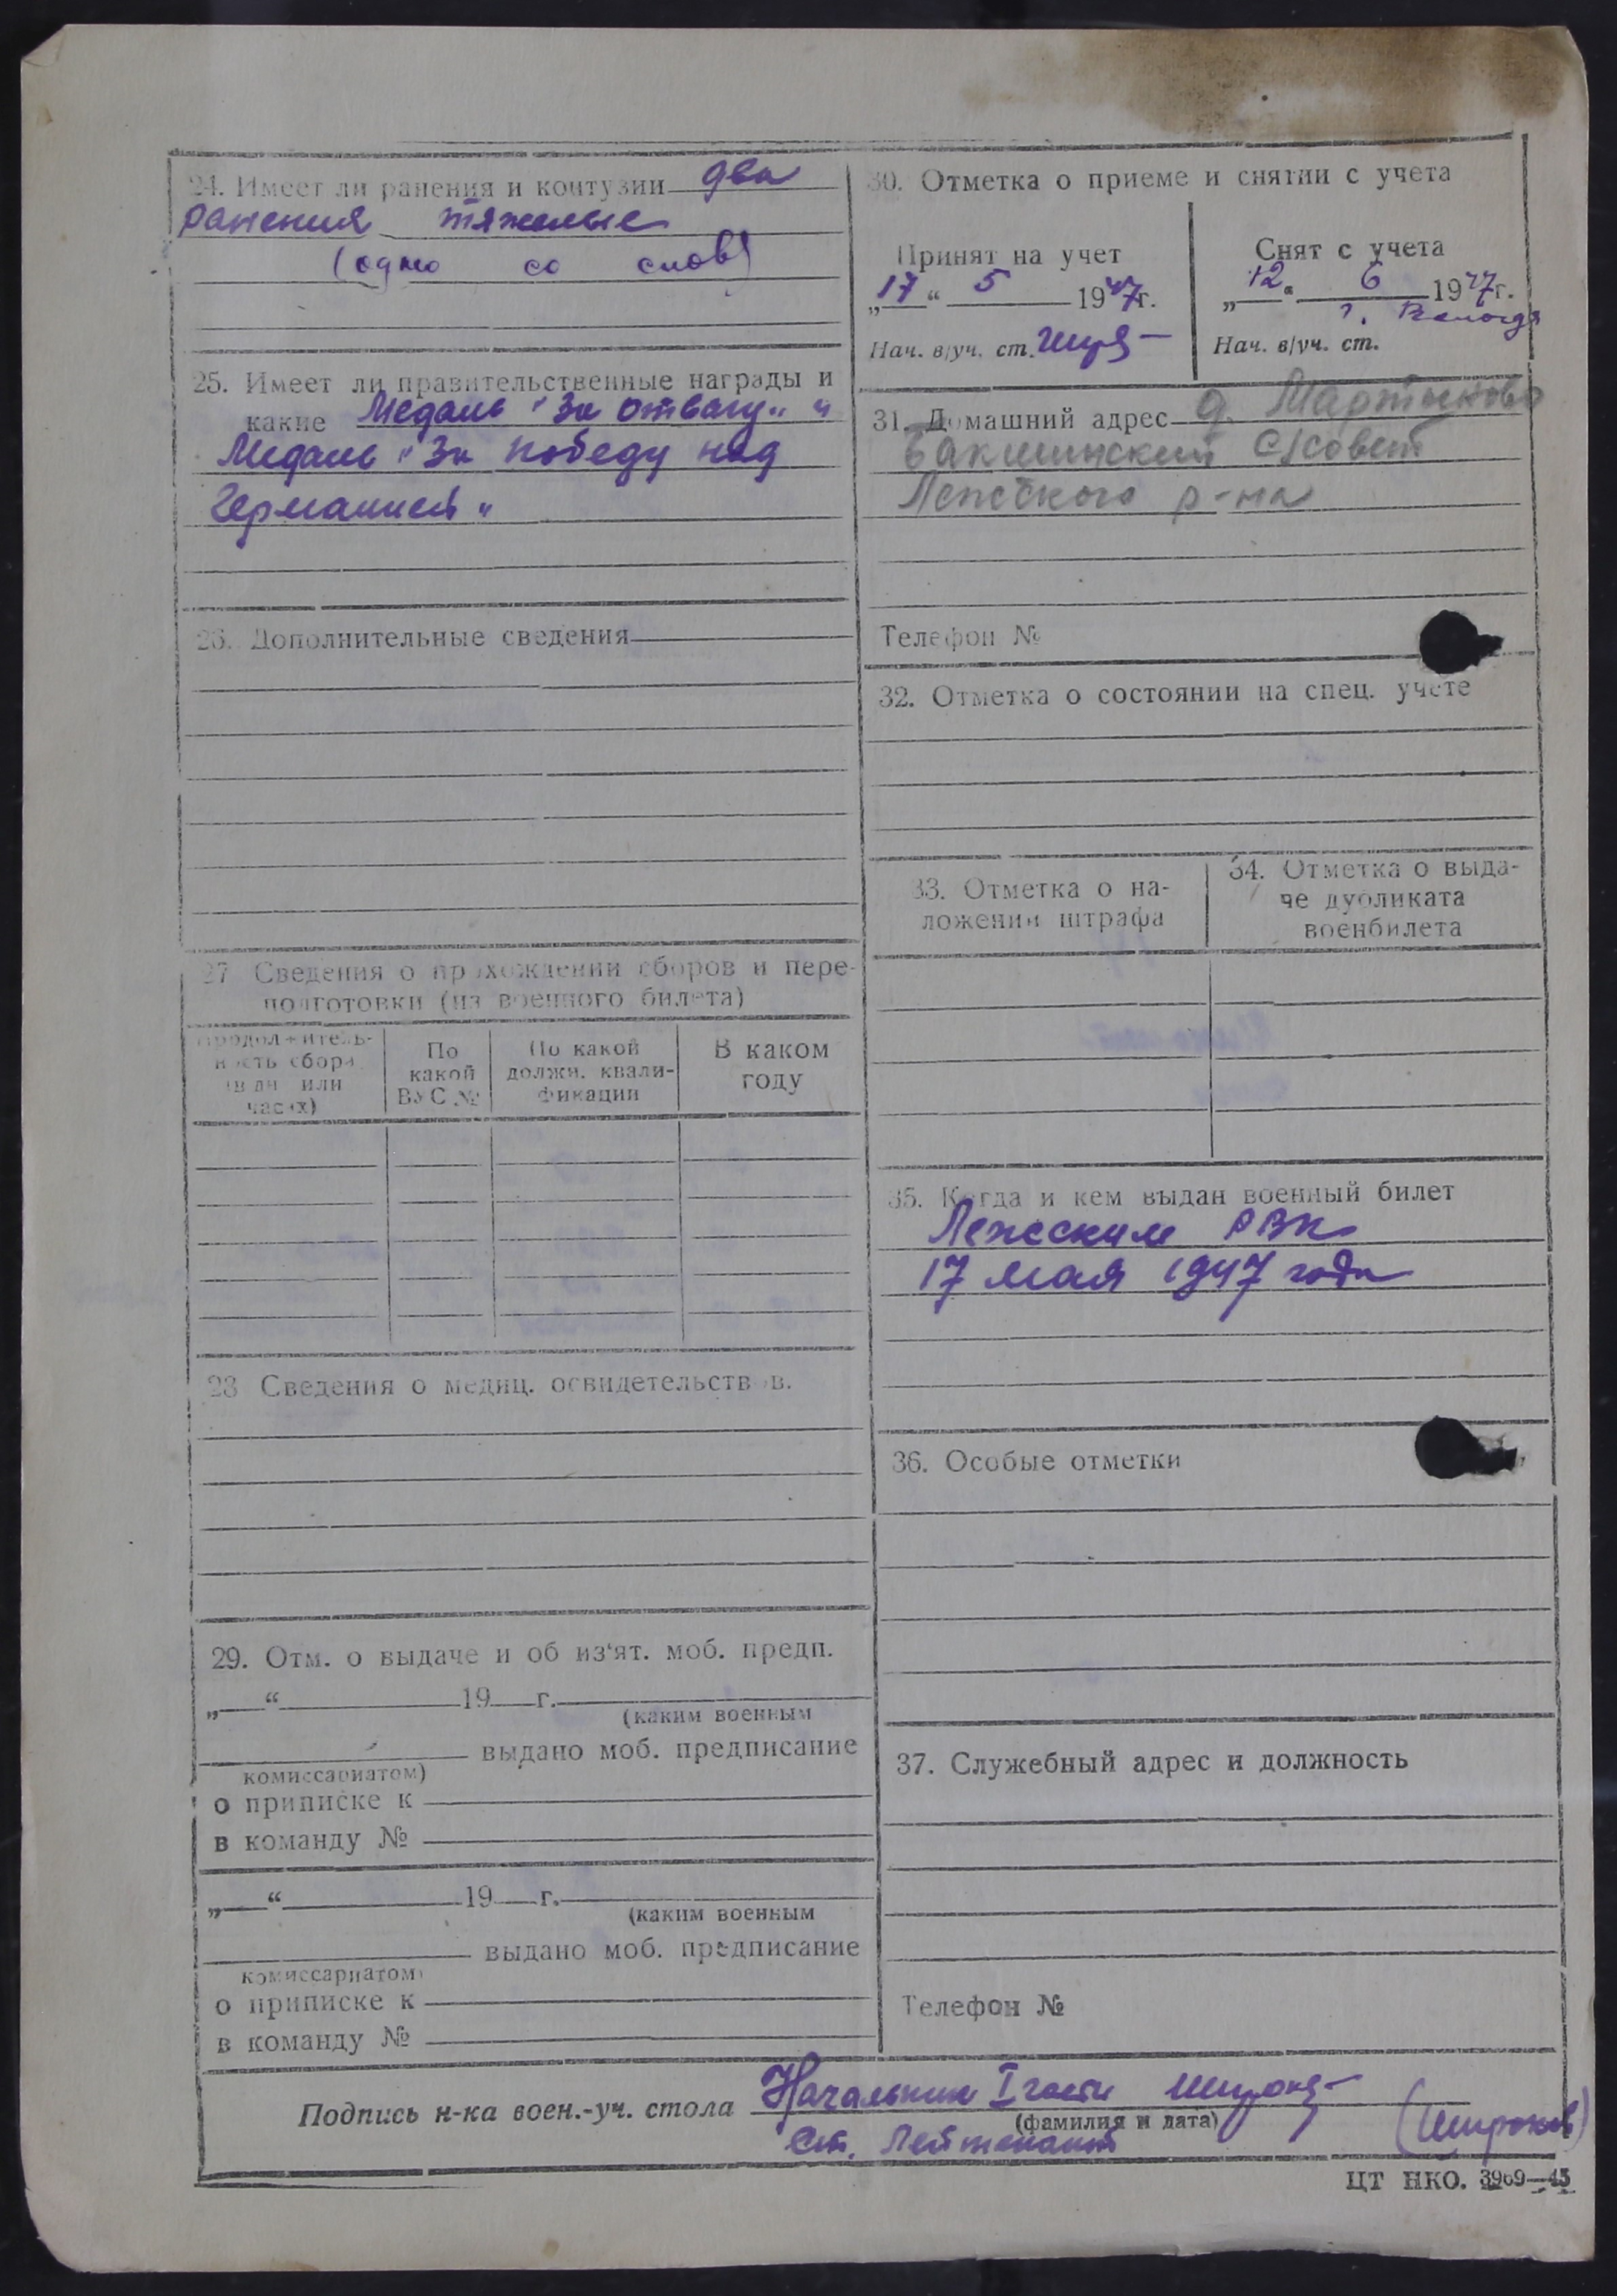 24. Имеет ли ранения и контузии два
ранения тяжелые
(одно со слов)
25. Имеет ли правительственные награды и
какие Медаль "За отвагу" и
Медаль "За победу над
Германией"
26. Дополнительные сведения
27 Сведения о прохождении сборов и пере-
подготовки (из военного билета)
Продолжитель-
ность сбора
(в дн или
часах)
По
какой
ВУС №
По какой
должн. квали-
фикации
В каком
году
28 Сведения о медиц. освидетельствов.
29. Отм. о выдаче и об из‘ят. моб. предп.
„ “ 19 г.
(каким военным
выдано моб. предписание
комиссариатом)
о приписке к
в команду №
„ “ 19 г.
(каким военным
выдано моб. предписание
комиссариатом)
о приписке к
в команду №
30. Отметка о приеме и снятии с учета
Принят на учет
„17“ 5 1947г.
Нач. в/уч. ст.
Снят с учета
„12“ 6 1947г.
г. Вологда
Нач. в/уч. ст.
31. Домашний адрес д. Мартынково
Бакшинский с/совет
Лежского р-на
Телефон №
32. Отметка о состоянии на спец. учете
33. Отметка о на-
ложении штрафа
34. Отметка о выда-
че дубликата
военбилета
35. Когда и кем выдан военный билет
Лежским РВК
17 мая 1947 года
36. Особые отметки
37. Служебный адрес и должность
Телефон №
Подпись н-ка воен.-уч. стола Начальник I части
(фамилия и дата)
Ст. Лейтенант (Широков)
ЦТ НКО. 3969—45